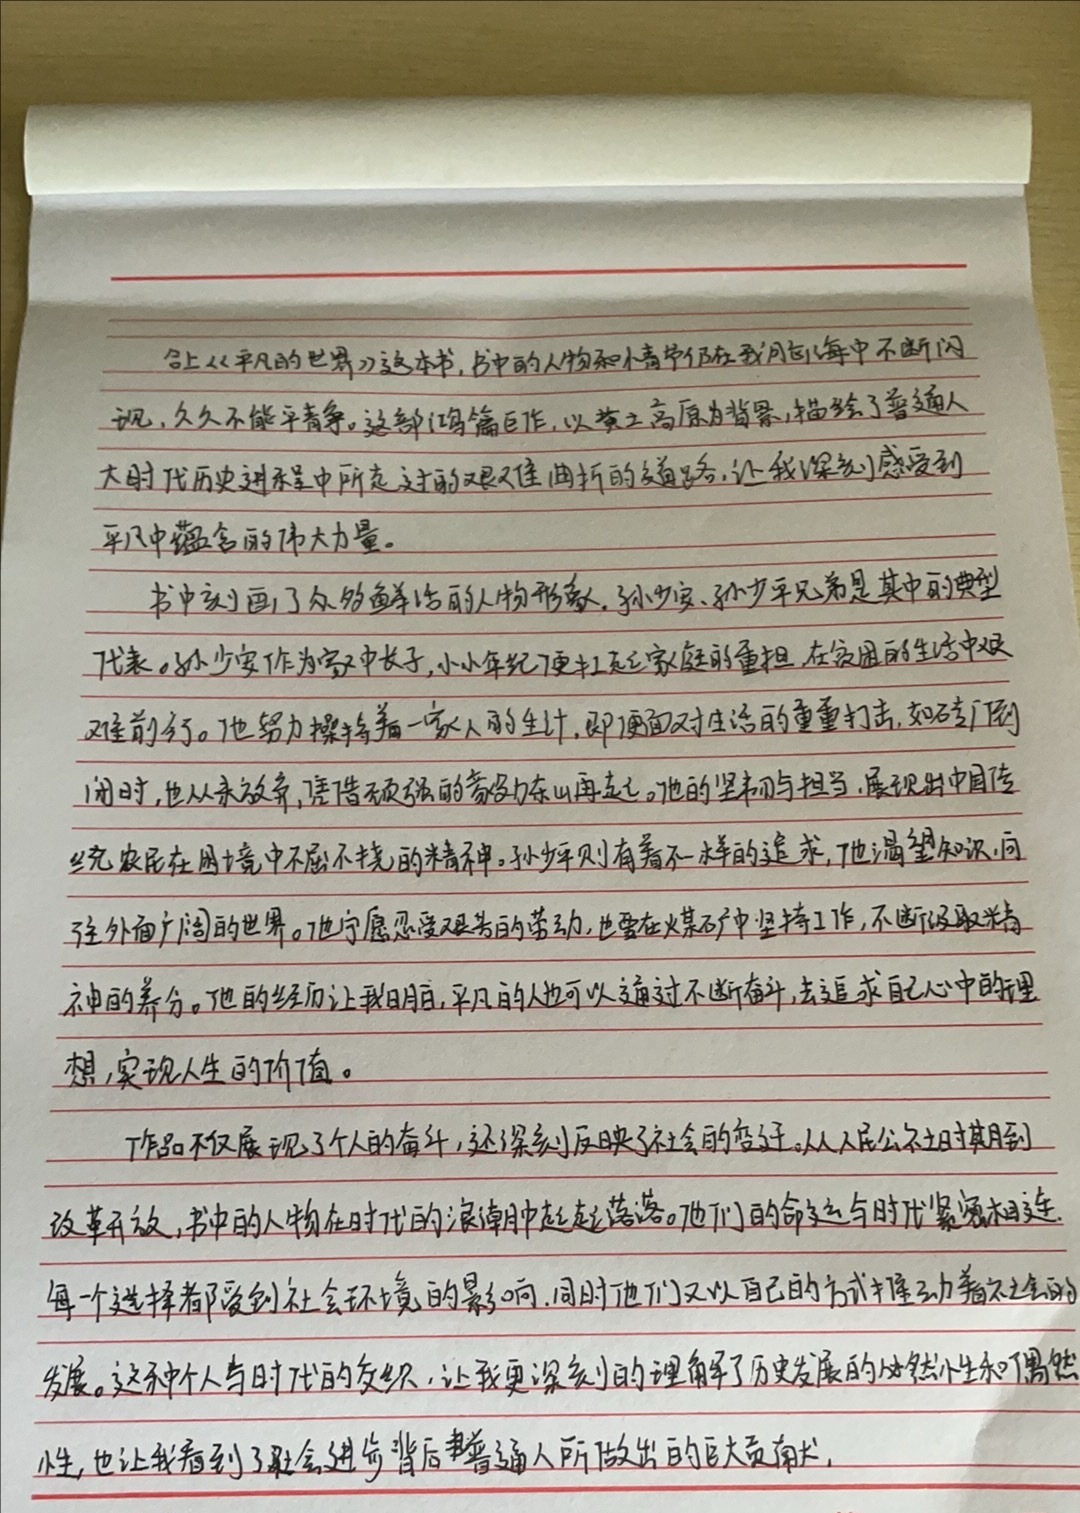 合上《平凡的世界》这本书，书中的人物和情节仍在我脑海中不断闪
现，久久不能平静。这部鸿篇巨作，以黄土高原为背景，描绘了普通人
大时代历史进程中所走过的艰难曲折的道路，让我深刻感受到
平凡中蕴含的伟大力量。
书中刻画了众多鲜活的人物形象，孙少安、孙少平兄弟是其中的典型
代表。孙少安作为家中长子，小小年纪便扛起家庭的重担，在贫困的生活中艰
难前行。他努力操持着一家人的生计，即便面对生活的重重打击，如砖厂倒
闭时，也从未放弃，凭借顽强的毅力东山再起。他的坚韧与担当，展现出中国传
统农民在困境中不屈不挠的精神。孙少平则有着不一样的追求，他渴望知识，向
往外面广阔的世界。他宁愿忍受艰苦的劳动，也要在煤矿中坚持工作，不断汲取精
神的养分。他的经历让我明白，平凡的人也可以通过不断奋斗，去追求自己心中的理
想，实现人生的价值。
作品不仅展现了个人的奋斗，还深刻反映了社会的变迁。从人民公社时期到
改革开放，书中的人物在时代的浪潮中起起落落。他们的命运与时代紧密相连，
每一个选择都受到社会环境的影响，同时他们又以自己的方式推动着社会的
发展。这种个人与时代的交织，让我更深刻的理解了历史发展的必然性和偶然
性，也让我看到了社会进步背后普通人所做出的巨大贡献，